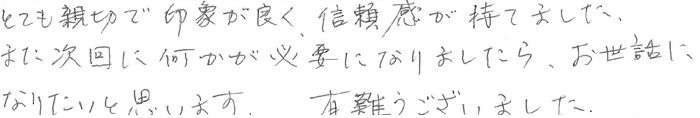 とても親切で印象が良く、信頼感が持てました、
また次回に何かが必要になりましたら、お世話に
なりたいと思います。 有難うございました.